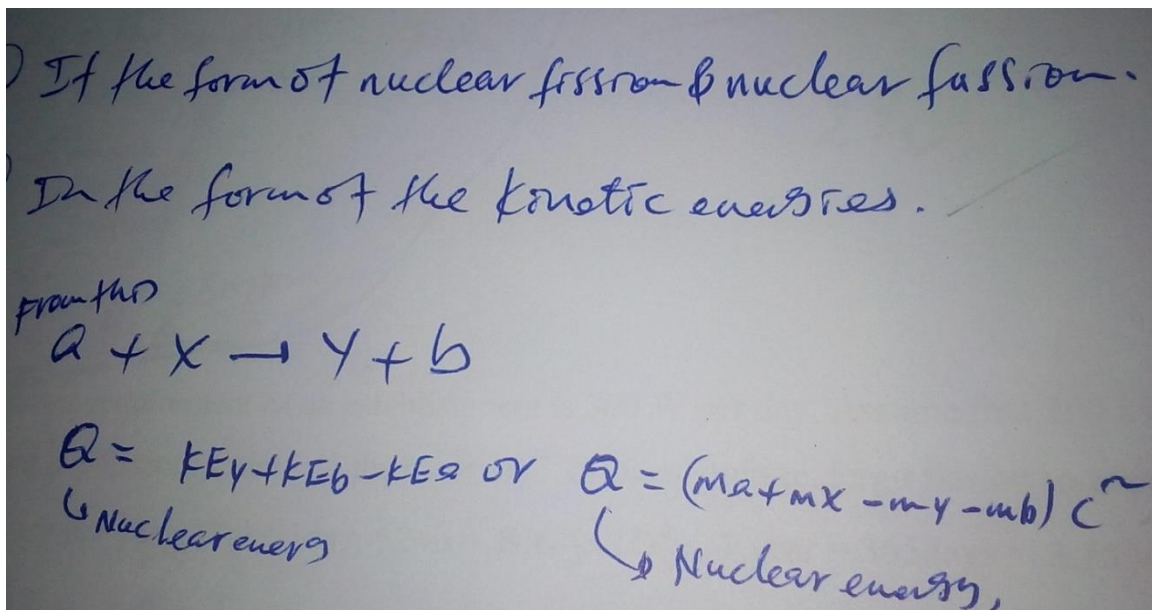 ) If the form of nuclear fission & nuclear fussion.
) In the form of the kinetic energies.
From this
a + X → Y + b
Q = KEy + KEb - KEa or Q = (ma + mX - mY - mb) c²
↳ Nuclear energ
↳ Nuclear energy,